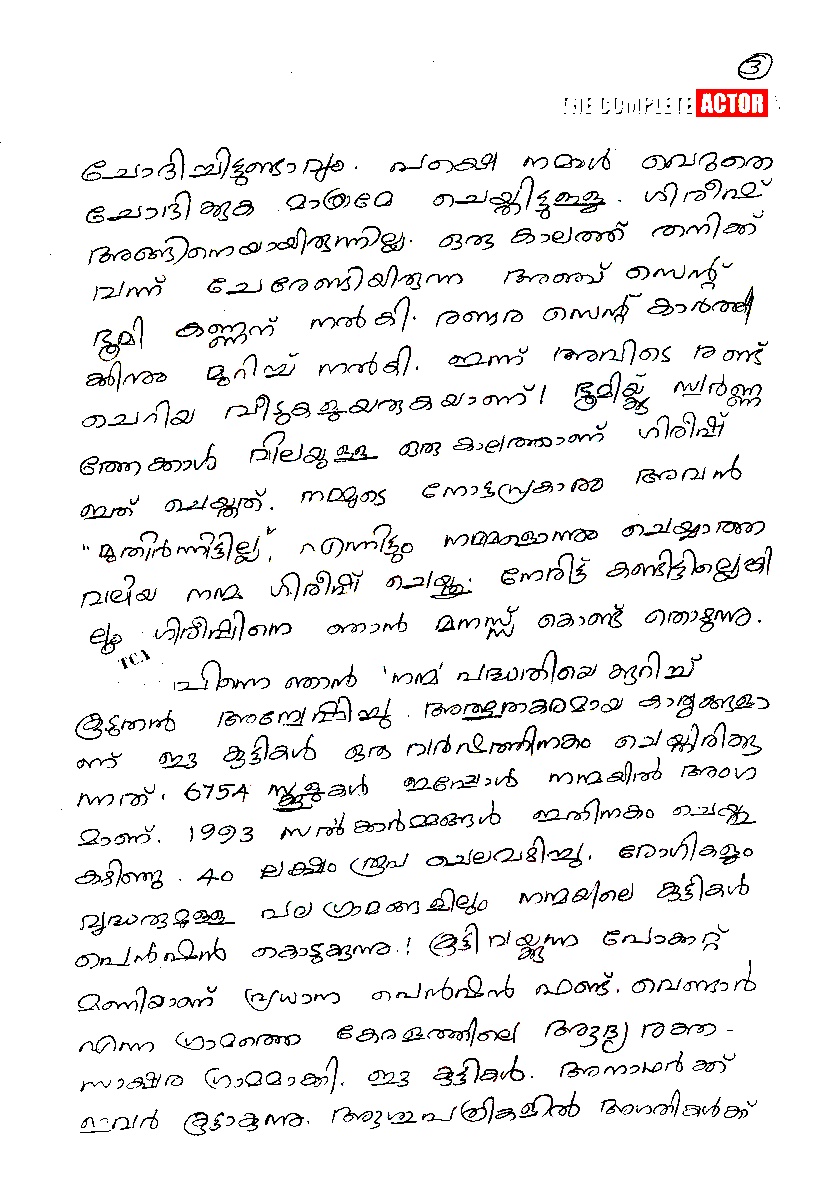 3
THE COMPLETE ACTOR
ചോദിച്ചിട്ടുണ്ടാവും. പക്ഷെ നമ്മൾ വെറുതെ
ചോദിക്കുക മാത്രമേ ചെയ്തിട്ടുള്ളൂ. ഗിരീഷ്
അങ്ങിനെയായിരുന്നില്ല. ഒരു കാലത്ത് തനിക്ക്
വന്ന് ചേരേണ്ടിയിരുന്ന അഞ്ച് സെന്റ്
ഭൂമി കണ്ണന് നൽകി. രണ്ടര സെന്റ് കാർത്തി
ക്കിനും മുറിച്ച് നൽകി. ഇന്ന് അവിടെ രണ്ട്
ചെറിയ വീടുകളുയരുകയാണ്! ഭൂമിയ്ക്ക് സ്വർണ്ണ
ത്തേക്കാൾ വിലയുള്ള ഒരു കാലത്താണ് ഗിരീഷ്
ഇത് ചെയ്തത്. നമ്മുടെ നോട്ടപ്രകാരം അവൻ
"മുതിർന്നിട്ടില്ല", എന്നിട്ടും നമ്മളൊന്നും ചെയ്യാത്ത
വലിയ നന്മ ഗിരീഷ് ചെയ്തു. നേരിട്ട് കണ്ടിട്ടില്ലെങ്കി
ലും ഗിരീഷിനെ ഞാൻ മനസ്സ് കൊണ്ട് തൊടുന്നു.
TCA
പിന്നെ ഞാൻ 'നന്മ' പദ്ധതിയെ കുറിച്ച്
കൂടുതൽ അന്വേഷിച്ചു. അത്ഭുതകരമായ കാര്യങ്ങളാ
ണ് ഈ കുട്ടികൾ ഒരു വർഷത്തിനകം ചെയ്തിരിക്കു
ന്നത്. 6754 സ്കൂളുകൾ ഇപ്പോൾ നന്മയിൽ അംഗ
മാണ്. 1993 സൽക്കാർമ്മങ്ങൾ ഇതിനകം ചെയ്തു
കഴിഞ്ഞു. 40 ലക്ഷം രൂപ ചെലവഴിച്ചു. രോഗികളും
വൃദ്ധരുമുള്ള പല ഗ്രാമങ്ങളിലും നന്മയിലെ കുട്ടികൾ
പെൻഷൻ കൊടുക്കുന്നു.! കൂട്ടിവയ്ക്കുന്ന പോക്കറ്റ്
മണിയാണ് പ്രധാന പെൻഷൻ ഫണ്ട്. വെണ്ടാർ
എന്ന ഗ്രാമത്തെ കേരളത്തിലെ ആദ്യ രക്ത-
സാക്ഷര ഗ്രാമമാക്കി. ഈ കുട്ടികൾ. അനാഥർക്ക്
ഇവർ കൂട്ടാകുന്നു. ആശുപത്രികളിൽ അഗതികൾക്ക്